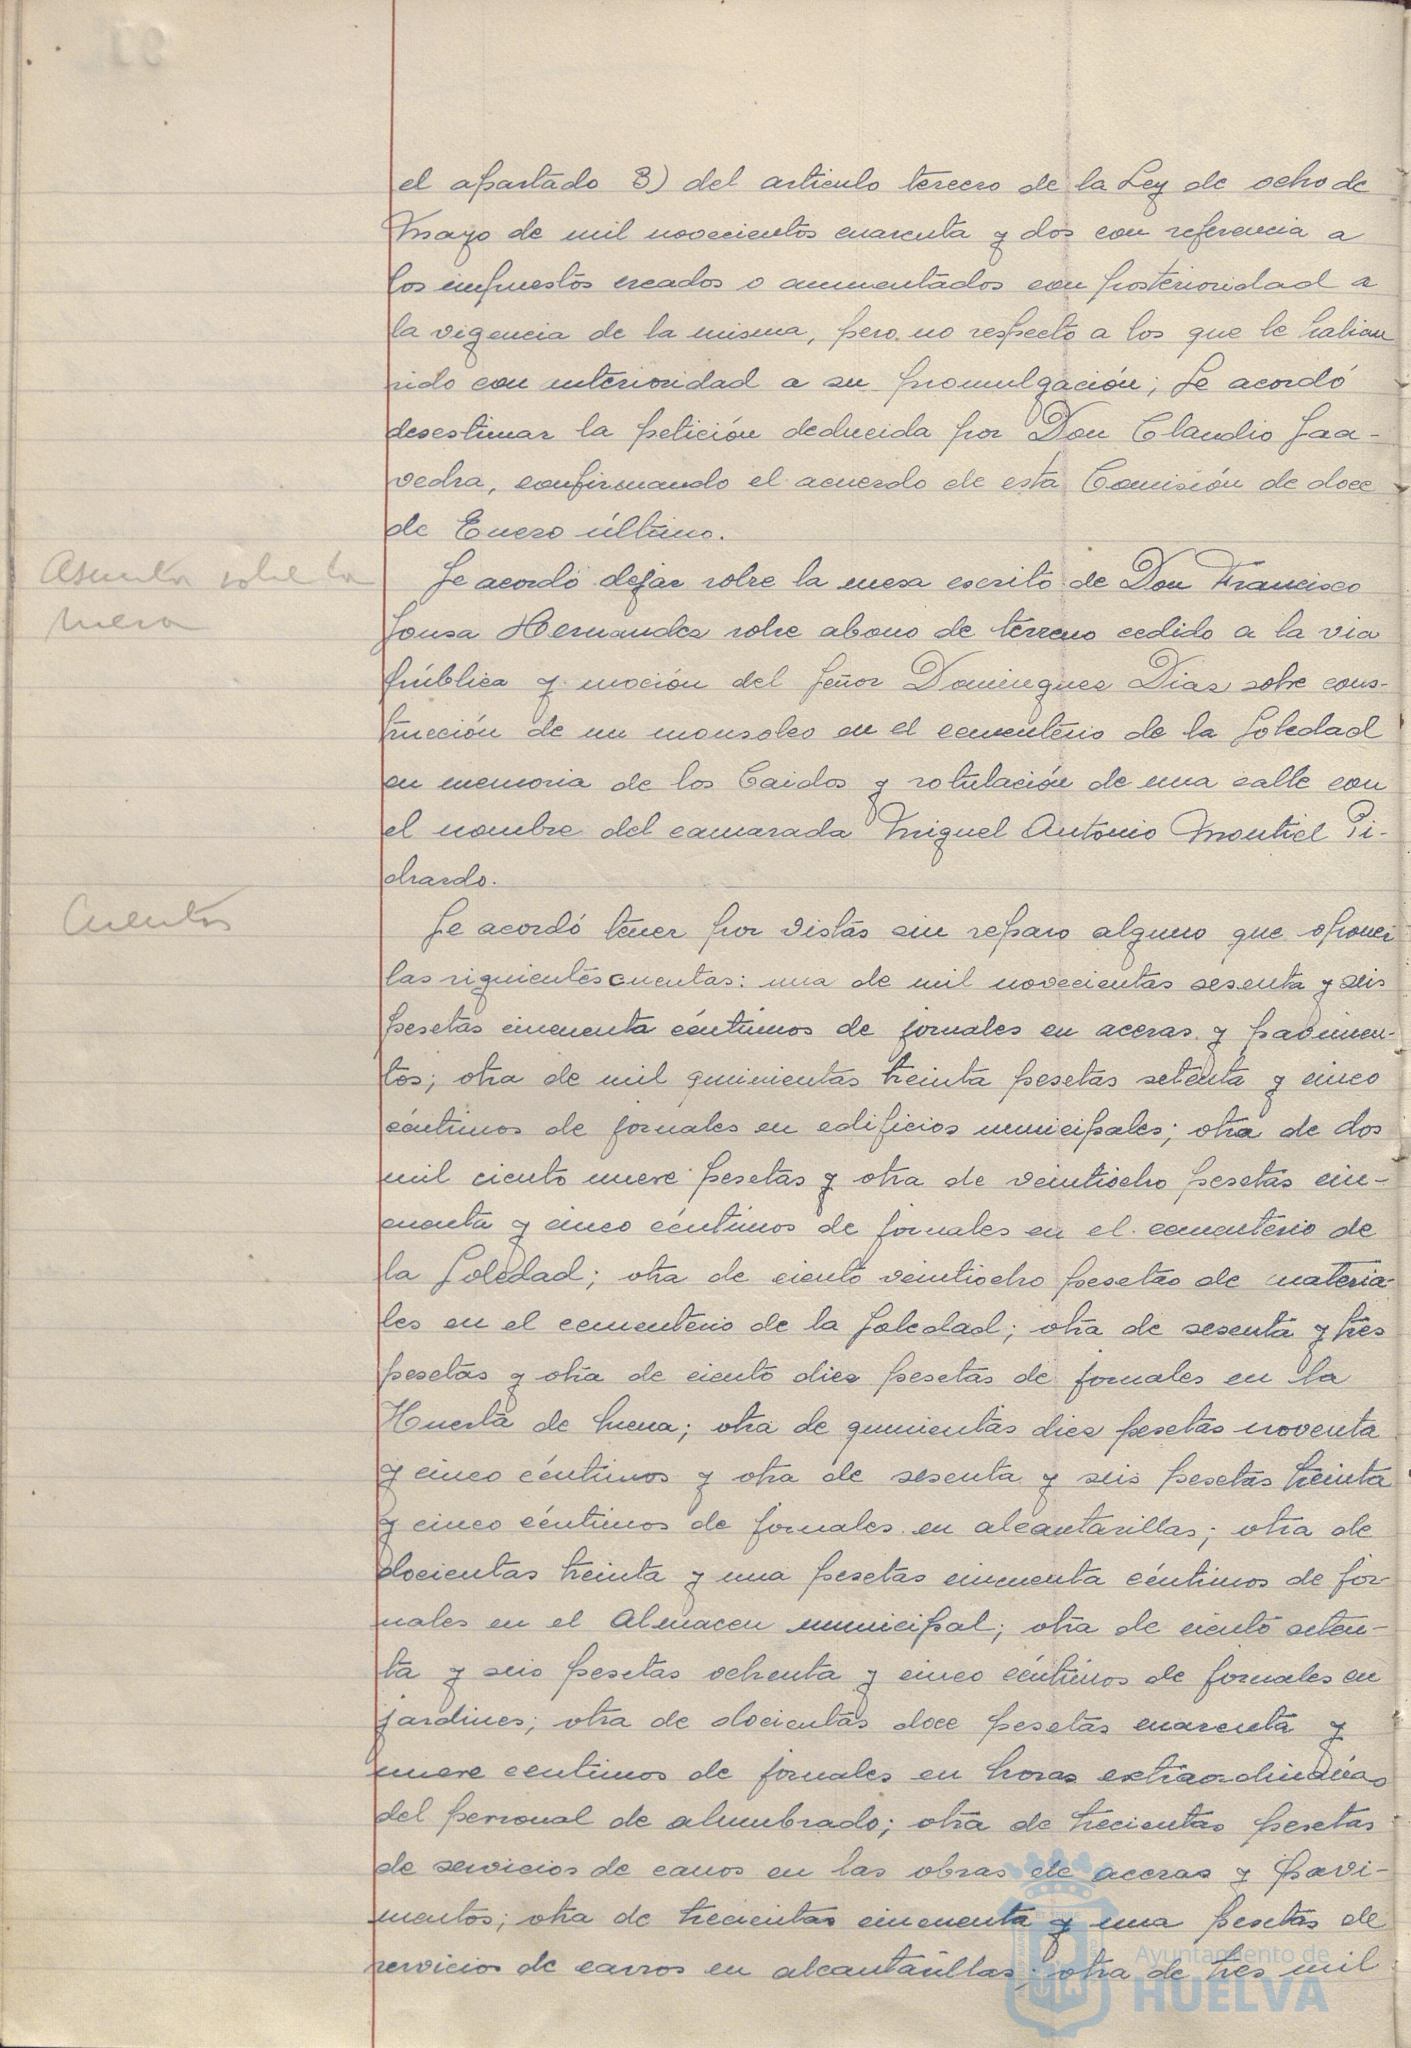 el apartado B) del articulo tercero de la Ley de ocho de
Mayo de mil novecientos cuarenta y dos con referencia a
los impuestos creados o aumentados con posterioridad a
la vigencia de la misma, pero no respecto a los que le habian
sido con anterioridad a su promulgación; Se acordó
desestimar la petición deducida por Don Claudio Saa-
vedra, confirmando el acuerdo de esta Comisión de doce
de Enero último.
Asuntos sobre la
mesa
Se acordó dejar sobre la mesa escrito de Don Francisco
Sousa Hernandez sobre abono de terreno cedido a la via
pública y moción del Señor Dominguez Diaz sobre cons-
trucción de un mausoleo en el cementerio de la Soledad
en memoria de los Caidos y rotulación de una calle con
el nombre del camarada Miguel Antonio Montiel Pi-
chardo.
Cuentas
Se acordó tener por vistas sin reparo alguno que oponer
las siguientes cuentas: una de mil novecientas sesenta y seis
pesetas cincuenta céntimos de jornales en aceras y pavimen-
tos; otra de mil quinientas treinta pesetas setenta y cinco
céntimos de jornales en edificios municipales; otra de dos
mil ciento nueve pesetas y otra de veintiocho pesetas cin-
cuenta y cinco céntimos de jornales en el cementerio de
la Soledad; otra de ciento veintiocho pesetas de materia-
les en el cementerio de la Soledad; otra de sesenta y tres
pesetas y otra de ciento diez pesetas de jornales en la
Huerta de Mena; otra de quinientas diez pesetas noventa
y cinco céntimos y otra de sesenta y seis pesetas treinta
y cinco céntimos de jornales en alcantarillas; otra de
docientas treinta y una pesetas cincuenta céntimos de jor-
nales en el Almacen municipal; otra de ciento seten-
ta y seis pesetas ochenta y cinco céntimos de jornales en
jardines; otra de docientas doce pesetas cuarenta y
nueve centimos de jornales en horas extraordinarias
del personal de alumbrado; otra de trecientas pesetas
de servicios de carros en las obras de aceras y pavi-
mentos; otra de trecientas cincuenta y una pesetas de
servicios de carros en alcantarillas; otra de tres mil
Ayuntamiento de
HUELVA